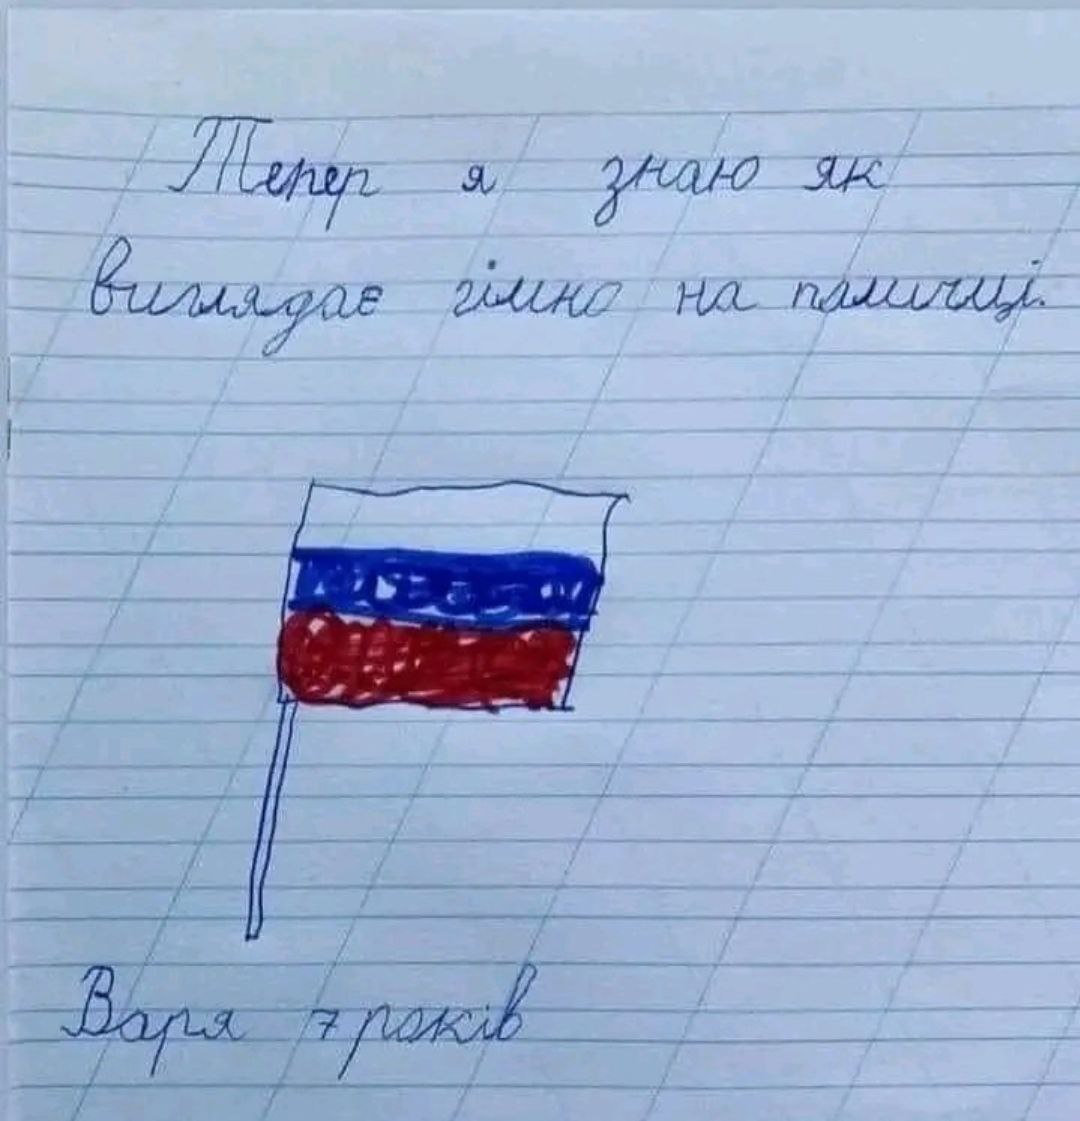 Тепер я знаю як
виглядає гімно на паличці.
Варя 7 років